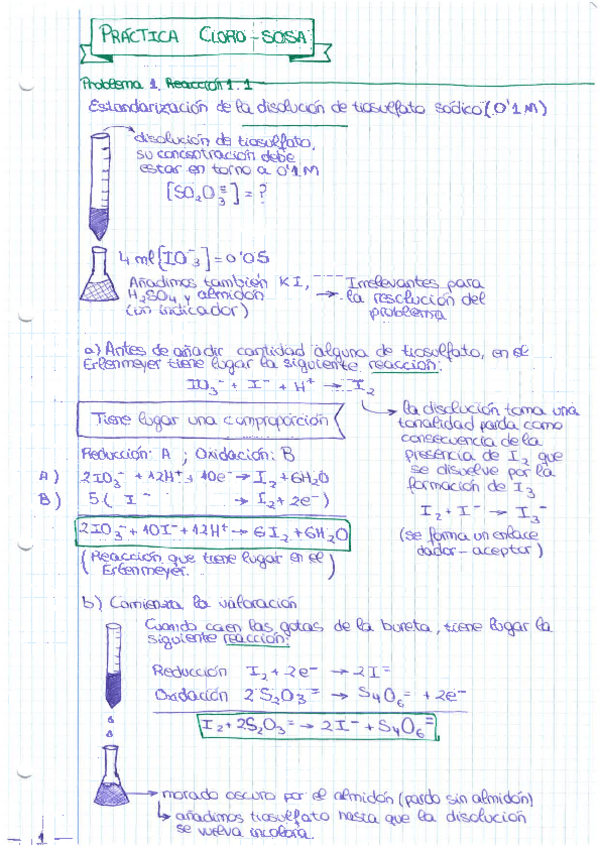 PRÁCTICA CLORO-SOSA
Problema 1. Reacción 1.1
Estandarización de la disolución de tiosulfato sódico (0'1M)
disolución de tiosulfato,
su concentración debe
estar en torno a 0'1M
[SO₂O₃⁼] = ?
4 ml [IO₃⁻] = 0'05
Añadimos también KI,
H₂SO₄ y almidón
(un indicador)
Irrelevantes para
→ la resolución del
problema
a) Antes de añadir cantidad alguna de tiosulfato, en el
Erlenmeyer tiene lugar la siguiente reacción:
IO₃⁻ + I⁻ + H⁺ → I₂
Tiene lugar una comproporción
la disolución toma una
tonalidad parda como
consecuencia de la
presencia de I₂ que
se disuelve por la
formación de I₃
I₂ + I⁻ → I₃⁻
(se forma un enlace
dador-aceptor)
Reducción: A ; Oxidación: B
A) 2IO₃⁻ + 12H⁺ + 10e⁻ → I₂ + 6H₂O
B) 5( I⁻ → I₂ + 2e⁻)
2IO₃⁻ + 10I⁻ + 12H⁺ → 6I₂ + 6H₂O
(Reacción que tiene lugar en el
Erlenmeyer.)
b) Comienza la valoración
Cuando caen las gotas de la bureta, tiene lugar la
siguiente reacción:
Reducción I₂ + 2e⁻ → 2I⁻
Oxidación 2 S₂O₃⁼ → S₄O₆⁼ + 2e⁻
I₂ + 2S₂O₃⁼ → 2I⁻ + S₄O₆⁼
→ morado oscuro por el almidón (pardo sin almidón)
↳ añadimos tiosulfato hasta que la disolución
se vuelva incolora.
-1-